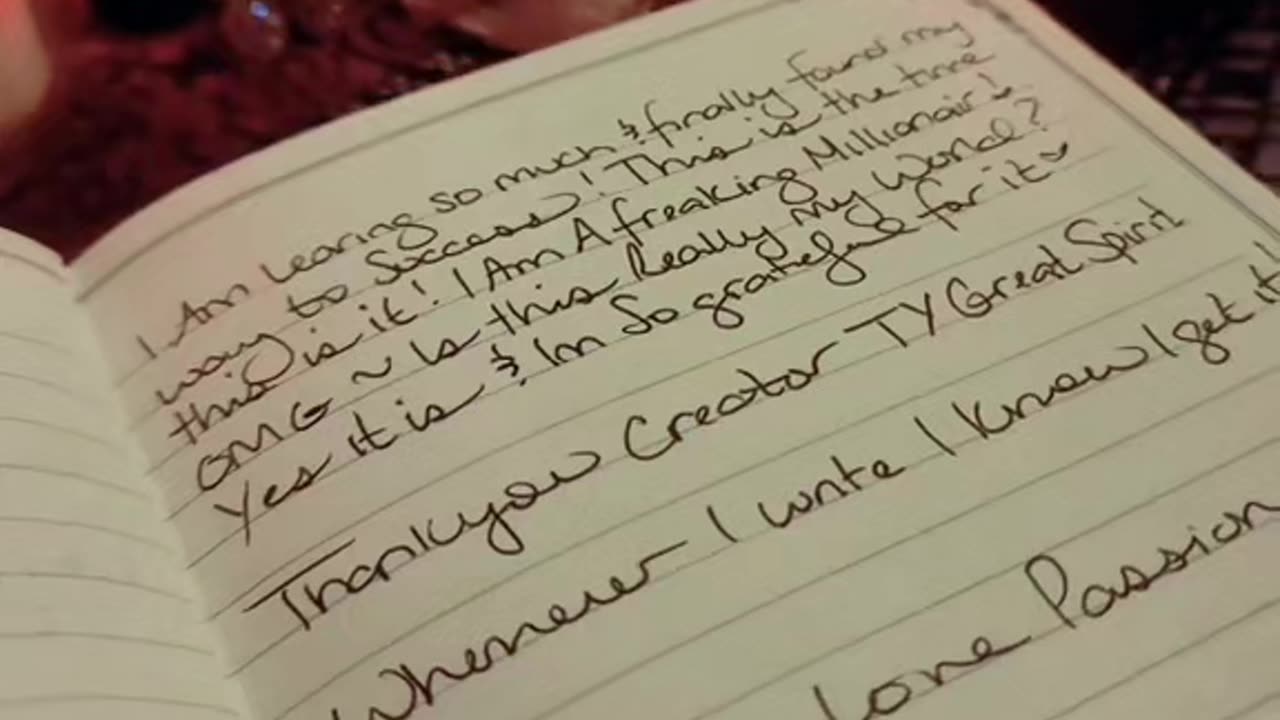 I Am Learing so much & finally found my
way to Success! This is the time
this is it! I Am A freaking Millionair!
OMG ~ Is this Really My World?
Yes it is & Im So grateful for it
Thankyou Creator TY Great Spirit
Whenever I write I Know I get it!
Love Passion